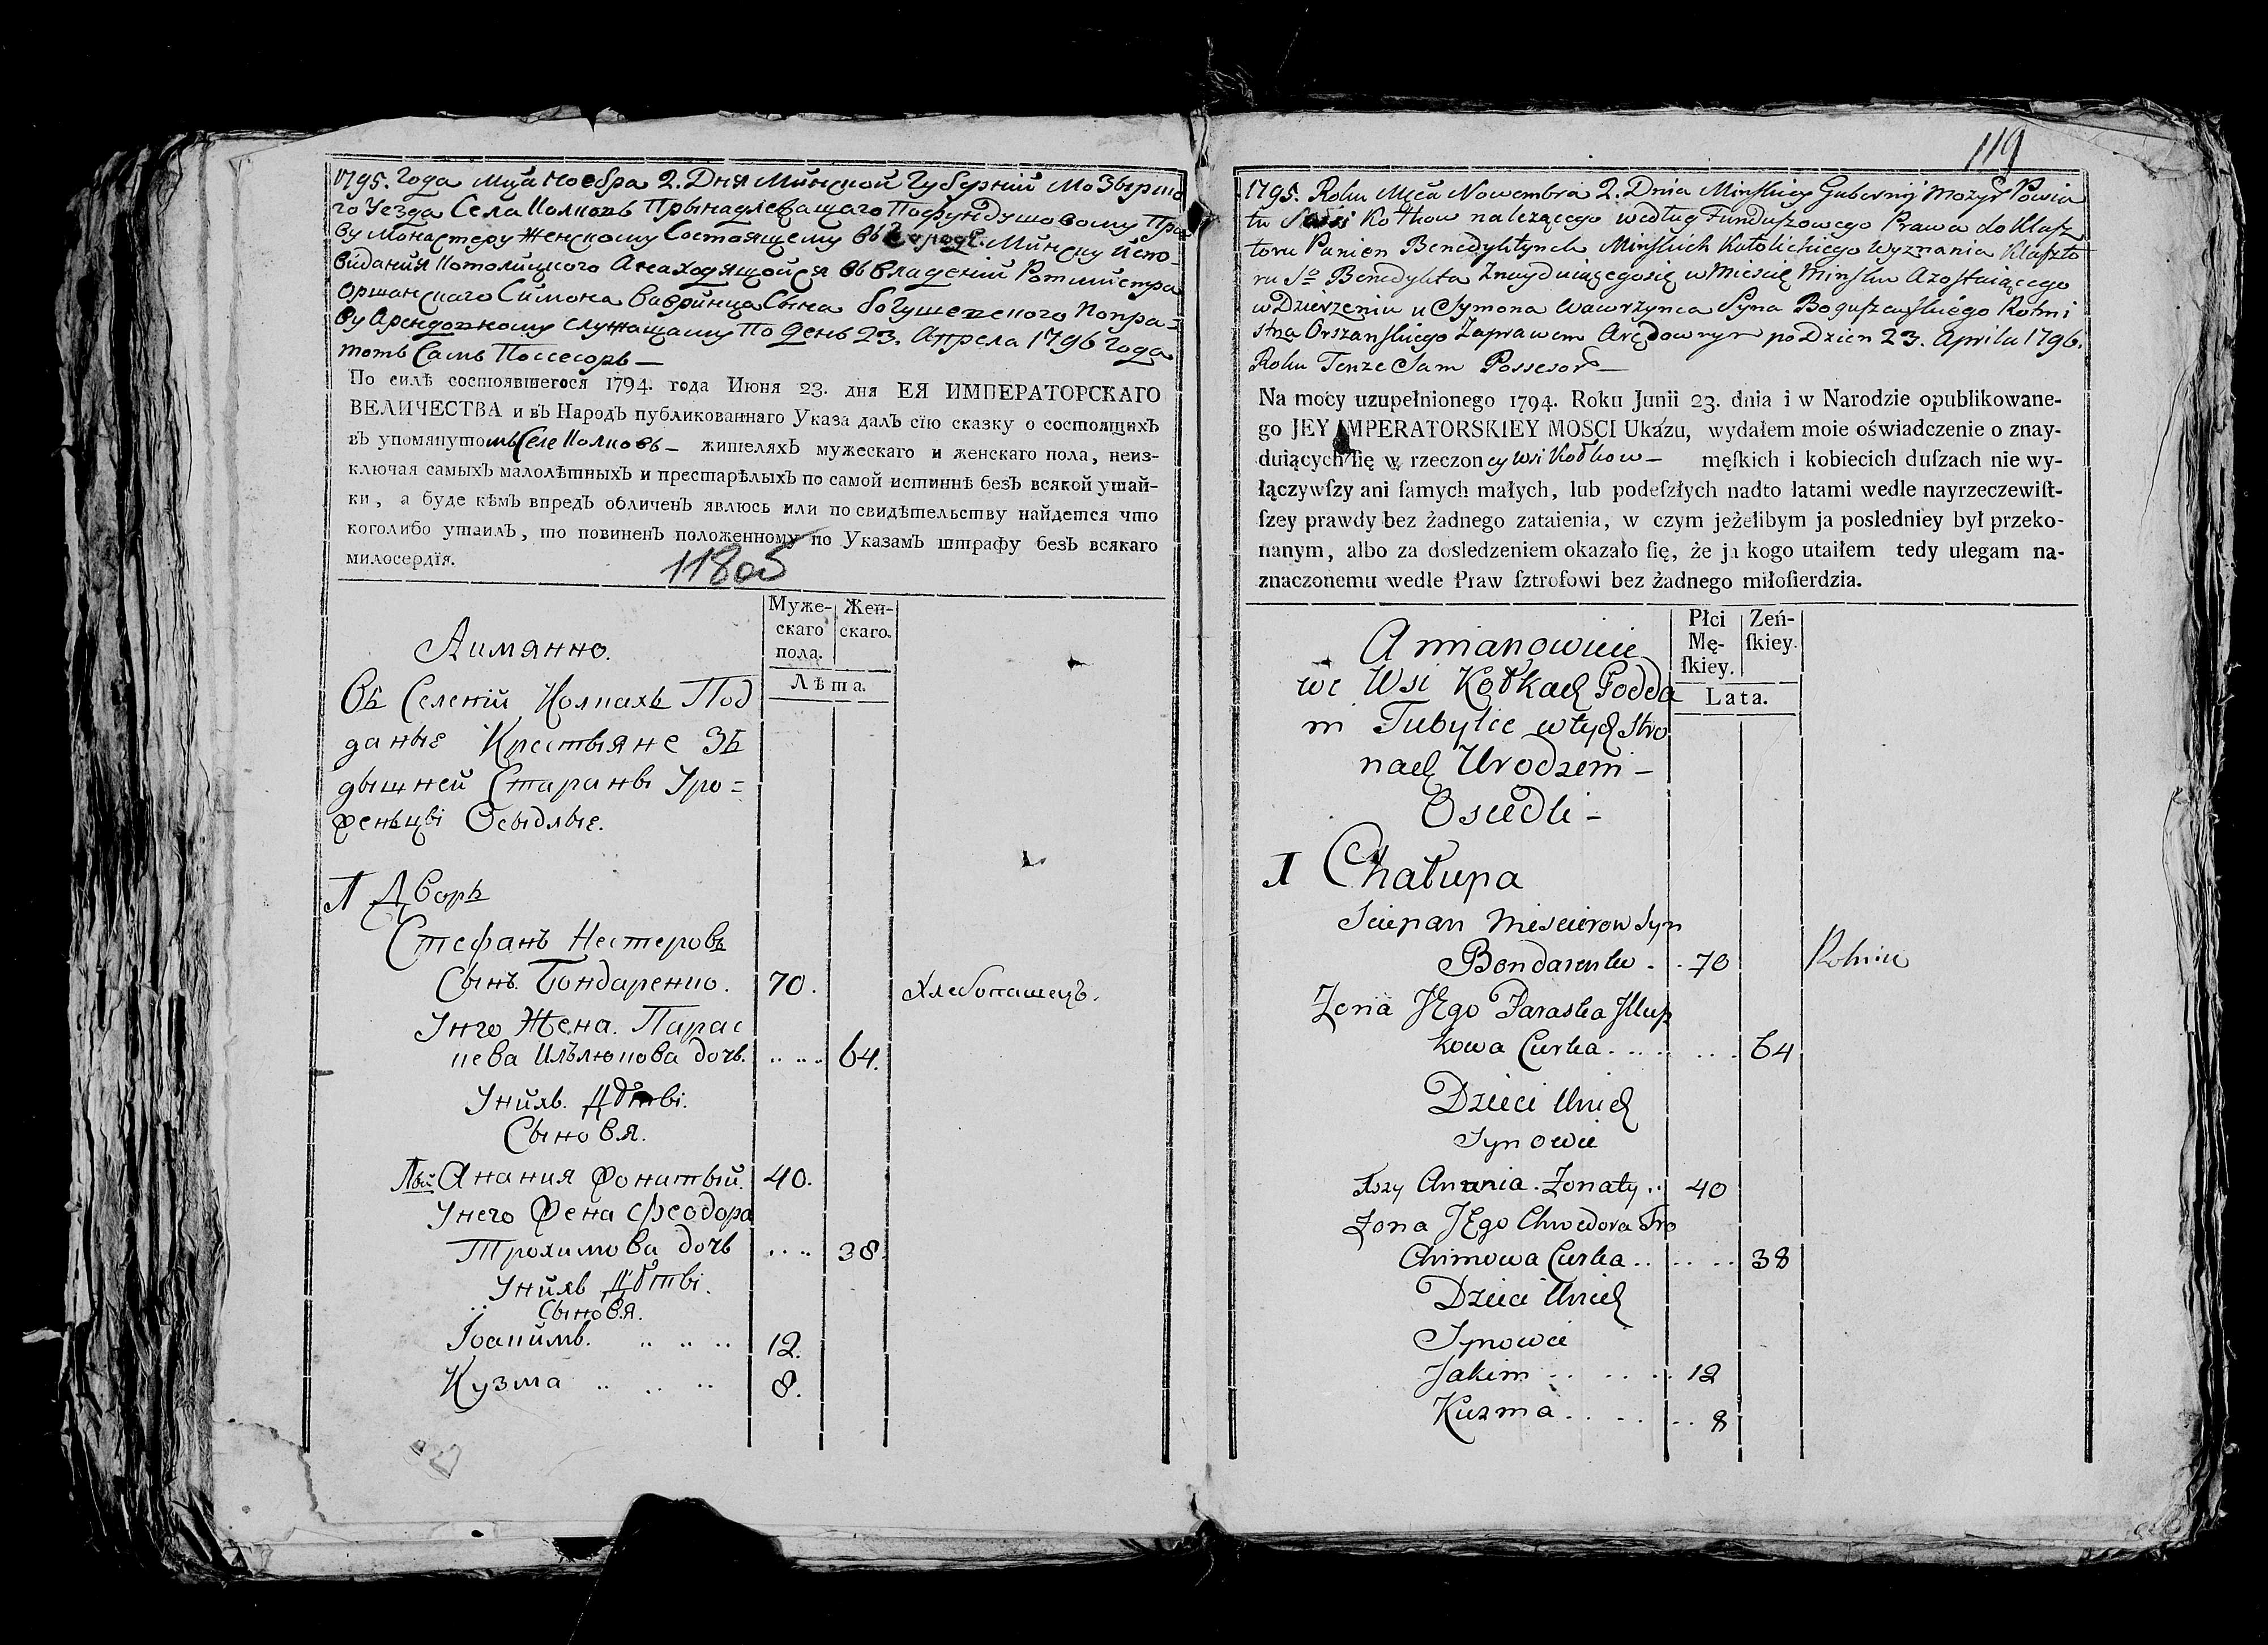 1795. Года Мца Ноебра 2. Дня Минской Губерний Мозырша
го Уезда Села Колковъ Прынадлежащаго Пофундушовому Пра
ву Монастеру Женскому Состоящему въ Городе. Минску Испо-
видания Котолицкого Анаходящойся въ владений Ротмистра
Оршанскаго Симона Вавринца Сына богушевского Попра-
ву Арендовному служащему По День 23. Апреля 1796 Года
тотъ Самъ Поссесоръ —
По силѣ состоявшегося 1794. года Июня 23. дня ЕЯ ИМПЕРАТОРСКАГО
ВЕЛИЧЕСТВА и въ Народъ публикованнаго Указа далъ сїю сказку о состоящихъ
въ упомянутомъ Селе Колковъ — жителяхъ мужескаго и женскаго пола, неиз-
ключая самыхъ малолѣтныхъ и престарѣлыхъ по самой истиннѣ безъ всякой утай-
ки, а буде кѣмъ впредъ обличенъ явлюсь или по свидѣтельству найдется что
коголибо утаилъ, то повиненъ положенному по Указамъ штрафу безъ всякаго
милосердїя.
118об
Муже-
скаго
пола.
Жен-
скаго.
Лѣта.
Аимянно.
Въ Селений Колкахъ Под
даные Крестьяне Зѣ
дышней Стараны Уро=
женьцы Осыдлые.
1 Дворъ
Стефанъ Нестеровъ
Сынъ. Бондаренко. 70. Хлебопашецъ.
Унго Жена. Парас
кева Илълюкова дочь. .. .. .. 64.
Унихъ. Дѣты.
Сыновя.
1вый Анания Жонитый. 40.
Унего Жена Феодора
Трохимова дочь .. .. 38.
Унихъ Дѣты.
Сыновя.
Іоакимъ. .. .. .. 12.
Кузма .. .. .. 8.
119
1795. Roku Męca Nowembra 2. Dnia Minskiey Gubernij Mozyr Powia
tu Kołkow należącego według Funduszowego Prawa do Klasz
toru Panien Benedyktynek Minskich Katolickiego Wyznania Klaszto
ru So Benedykta Znayduiącegosię w Miescie Minsku Azostaiącego
w Dzierzeniu u Symona Wawrzynca Syna Boguszewskiego Rotmi
strza Orszanskiego Zaprawem Arędownym po Dzien 23. Aprilu 1796.
Roku Tenze Sam Possesor —
Na mocy uzupełnionego 1794. Roku Junii 23. dnia i w Narodzie opublikowane-
go JEY IMPERATORSKIEY MOSCI Ukázu, wydałem moie oświadczenie o znay-
duiących ſię w rzeczoney Wsi Kołkow — męſkich i kobiecich duſzach nie wy-
łączywſzy ani ſamych małych, lub podeſzłych nadto latami wedle nayrzeczewiſt-
ſzey prawdy bez żadnego zataienia, w czym jeżelibym ja posledniey był przeko-
nanym, albo za dosledzeniem okazało ſię, że ja kogo utaiłem tedy ulegam na-
znaczonemu wedle Praw ſztrofowi bez żadnego miłoſierdzia.
Płci
Mę-
ſkiey.
Zeń-
ſkiey.
Lata.
A mianowicie
we Wsi Kołkach Podda
ni Tubylce w tych stro
nach Urodzeni —
Osiedli —
1 Chałupa
Sciepan Niescierow Syn
Bondarenko . . 70 Rolnik
Zona JEgo Paraska Jllusz
kowa Curka . . . . . . . 64
Dzieci Unich
Synowie
1szy Anania . Zonaty .. 40
Zona JEgo Chwedora Tro
Chimowa Curka .. .. .. 38
Dzieci Unich
Synowie
Jakim . . . . . . 12
Kuzma . . . . . . 8